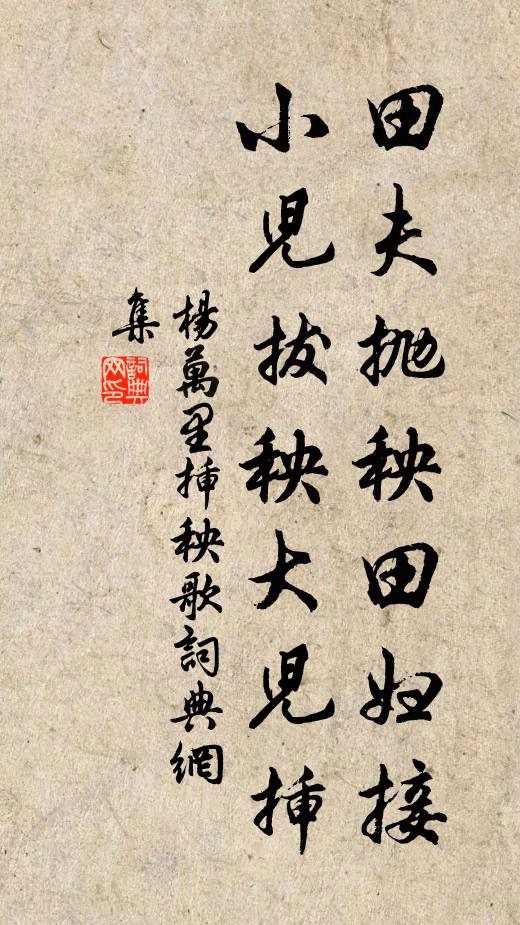 田夫抛秧田妇接
小児拔秧大児挿
楊萬里挿秧歌詞典網
集
詞典
网印